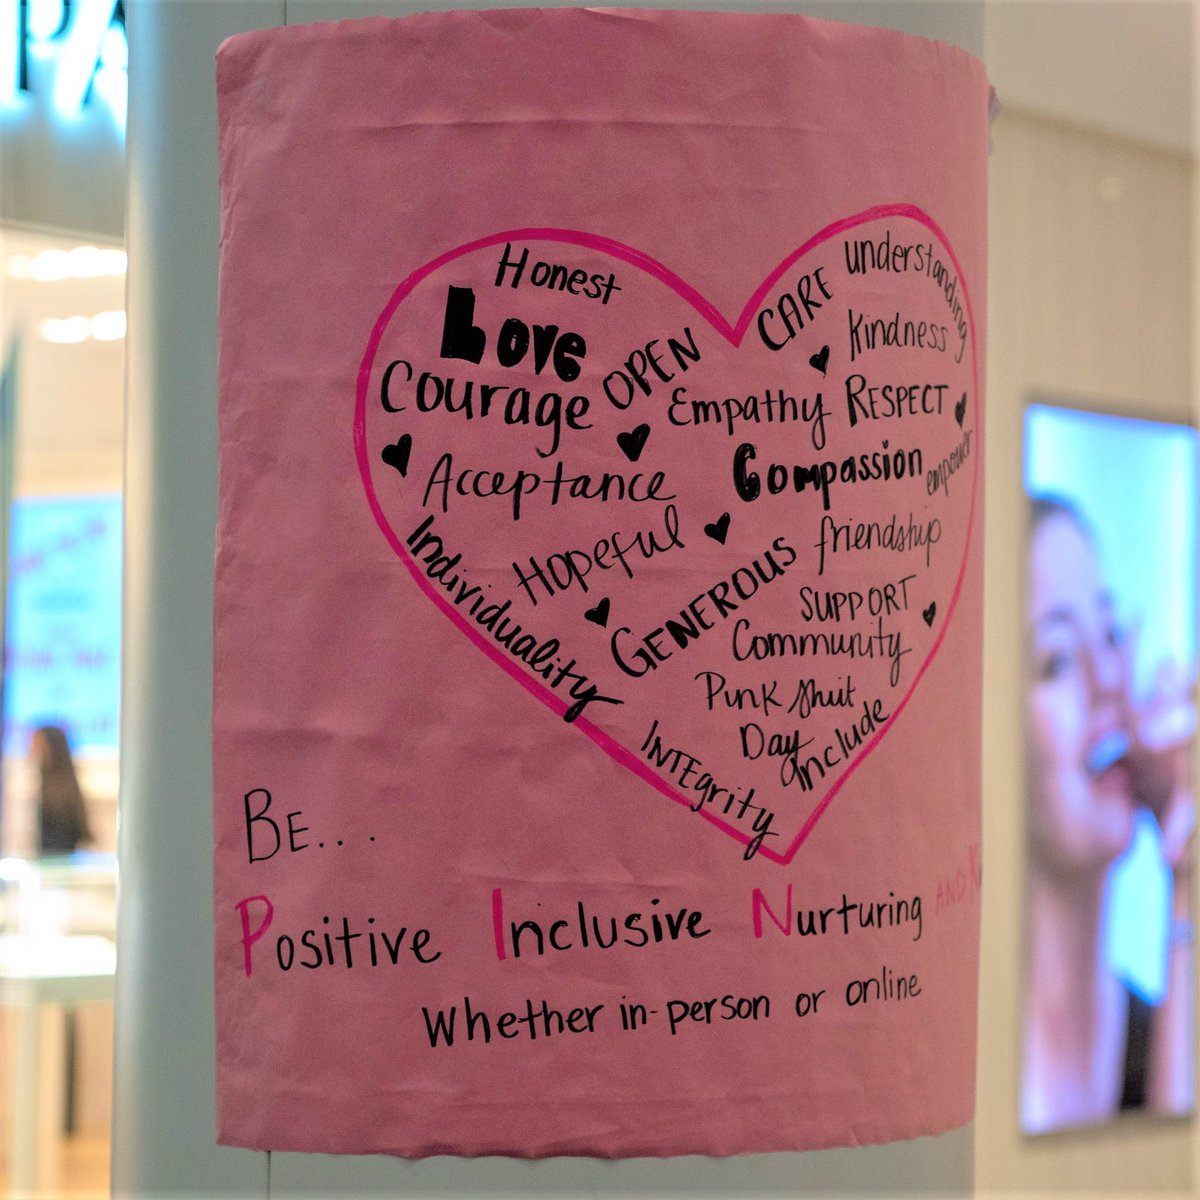 PA
Honest
Love
Courage
OPEN
CARE
understanding
Kindness
Empathy
RESPECT
Acceptance
Compassion
empower
Hopeful
friendship
Individuality
GENEROUS
SUPPORT
Community
Pink Shirt
Day
include
INTEgrity
BE...
Positive Inclusive Nurturing AND
Whether in-person or online